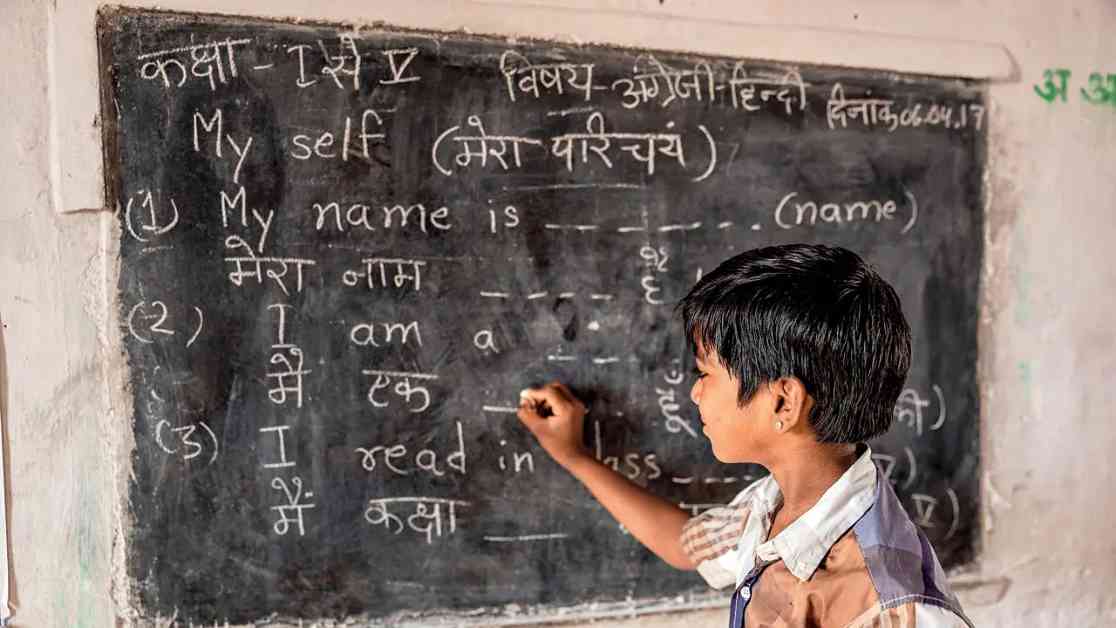 कक्षा - I सै V विषय - अंग्रेजी-हिन्दी दिनांक 06.04.17
My self (मेरा परिचयं)
(1) My name is _ _ _ _ _ . . (name)
मेरा नाम _ _ _ _ है
(2) I am a _ _
मैं एक _
(3) I read in _ _ _ _
मैं कक्षा _ V)
अ